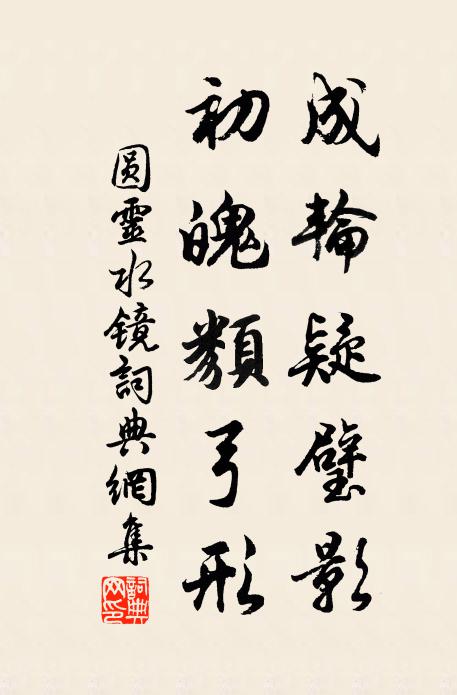 成輪疑璧影
初魄類弓形
圆靈水镜詞典網集
詞典網印